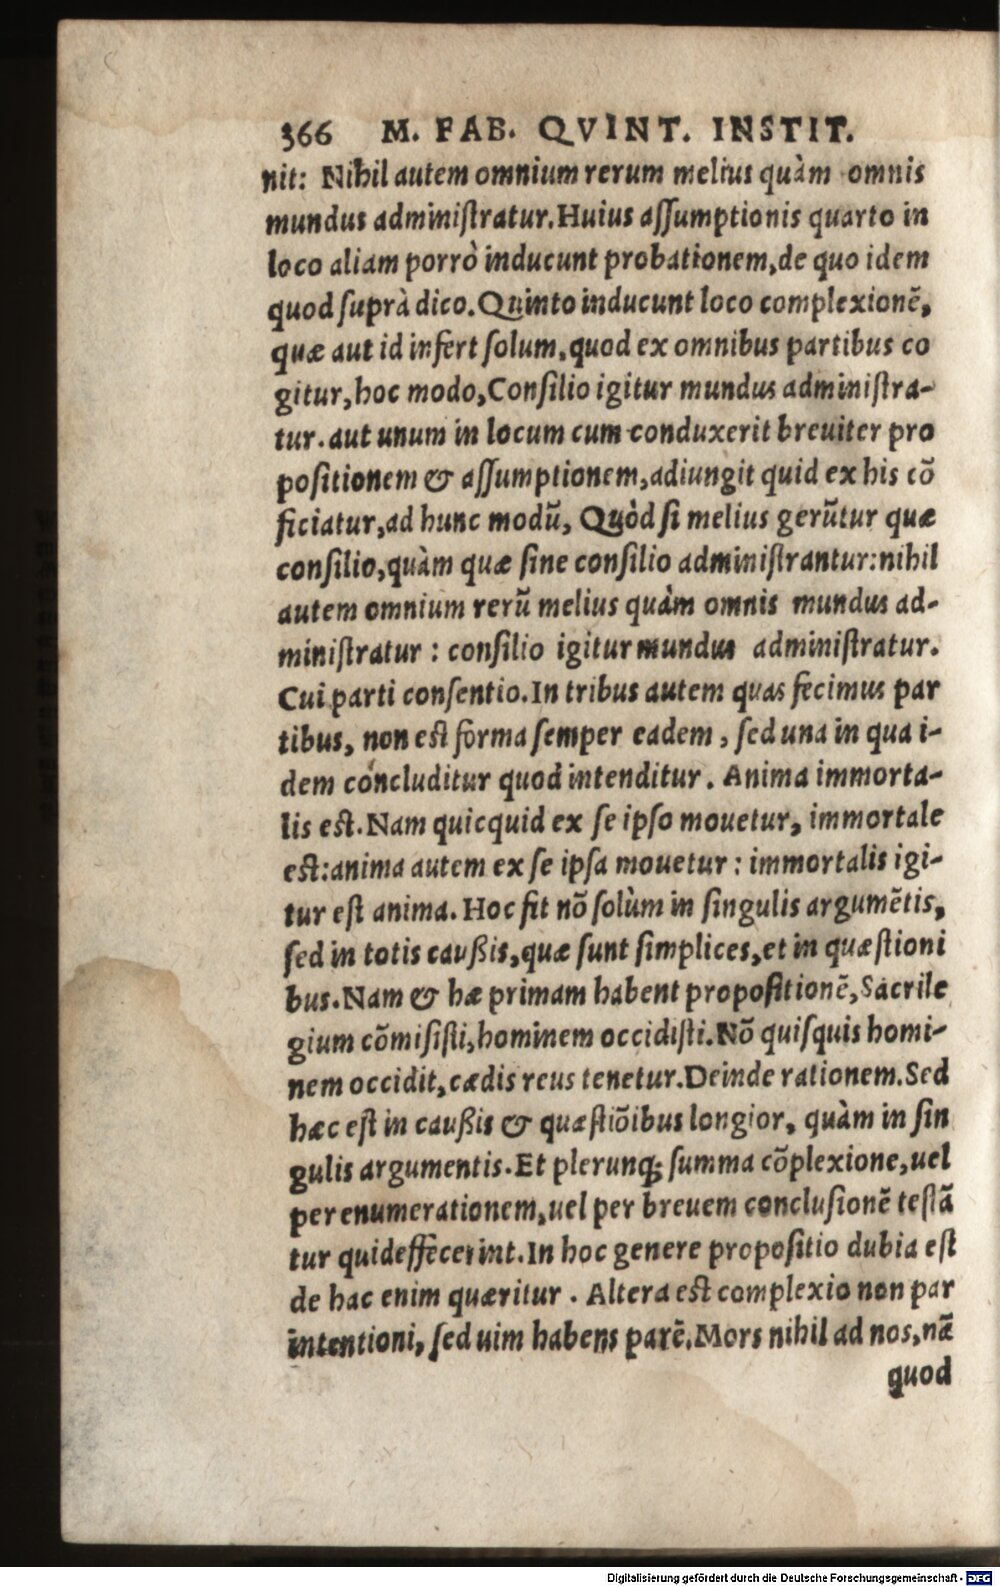 366 M. FAB. QVINT. INSTIT.
nit: Nihil autem omnium rerum melius quàm omnis
mundus adminiſtratur. Huius aſſumptionis quarto in
loco aliam porrò inducunt probationem, de quo idem
quod ſuprà dico. Quinto inducunt loco complexionē,
quæ aut id infert ſolum, quod ex omnibus partibus co
gitur, hoc modo, Conſilio igitur mundus adminiſtra-
tur. aut unum in locum cum conduxerit breuiter pro
poſitionem & aſſumptionem, adiungit quid ex his cō
ficiatur, ad hunc modū, Quòd ſi melius gerūtur quæ
conſilio, quàm quæ ſine conſilio adminiſtrantur: nihil
autem omnium rerū melius quàm omnis mundus ad-
miniſtratur: conſilio igitur mundus adminiſtratur.
Cui parti conſentio. In tribus autem quas fecimus par
tibus, non est forma ſemper eadem, ſed una in qua i-
dem concluditur quod intenditur. Anima immorta-
lis est. Nam quicquid ex ſe ipſo mouetur, immortale
est: anima autem ex ſe ipſa mouetur: immortalis igi-
tur eſt anima. Hoc fit nō ſolùm in ſingulis argumētis,
ſed in totis cauſſis, quæ ſunt ſimplices, et in quæſtioni
bus. Nam & hæ primam habent propoſitionē, Sacrile
gium cōmiſiſti, hominem occidiſti. Nō quiſquis homi-
nem occidit, cædis reus tenetur. Deinde rationem. Sed
hæc eſt in cauſſis & quæſtiōibus longior, quàm in ſin
gulis argumentis. Et plerunq; ſumma cōplexione, uel
per enumerationem, uel per breuem concluſionē teſtā
tur quid effecerint. In hoc genere propoſitio dubia eſt
de hac enim quæritur. Altera est complexio non par
intentioni, ſed uim habens parē. Mors nihil ad nos, nā
quod
Digitalisierung gefördert durch die Deutsche Forschungsgemeinschaft - DFG